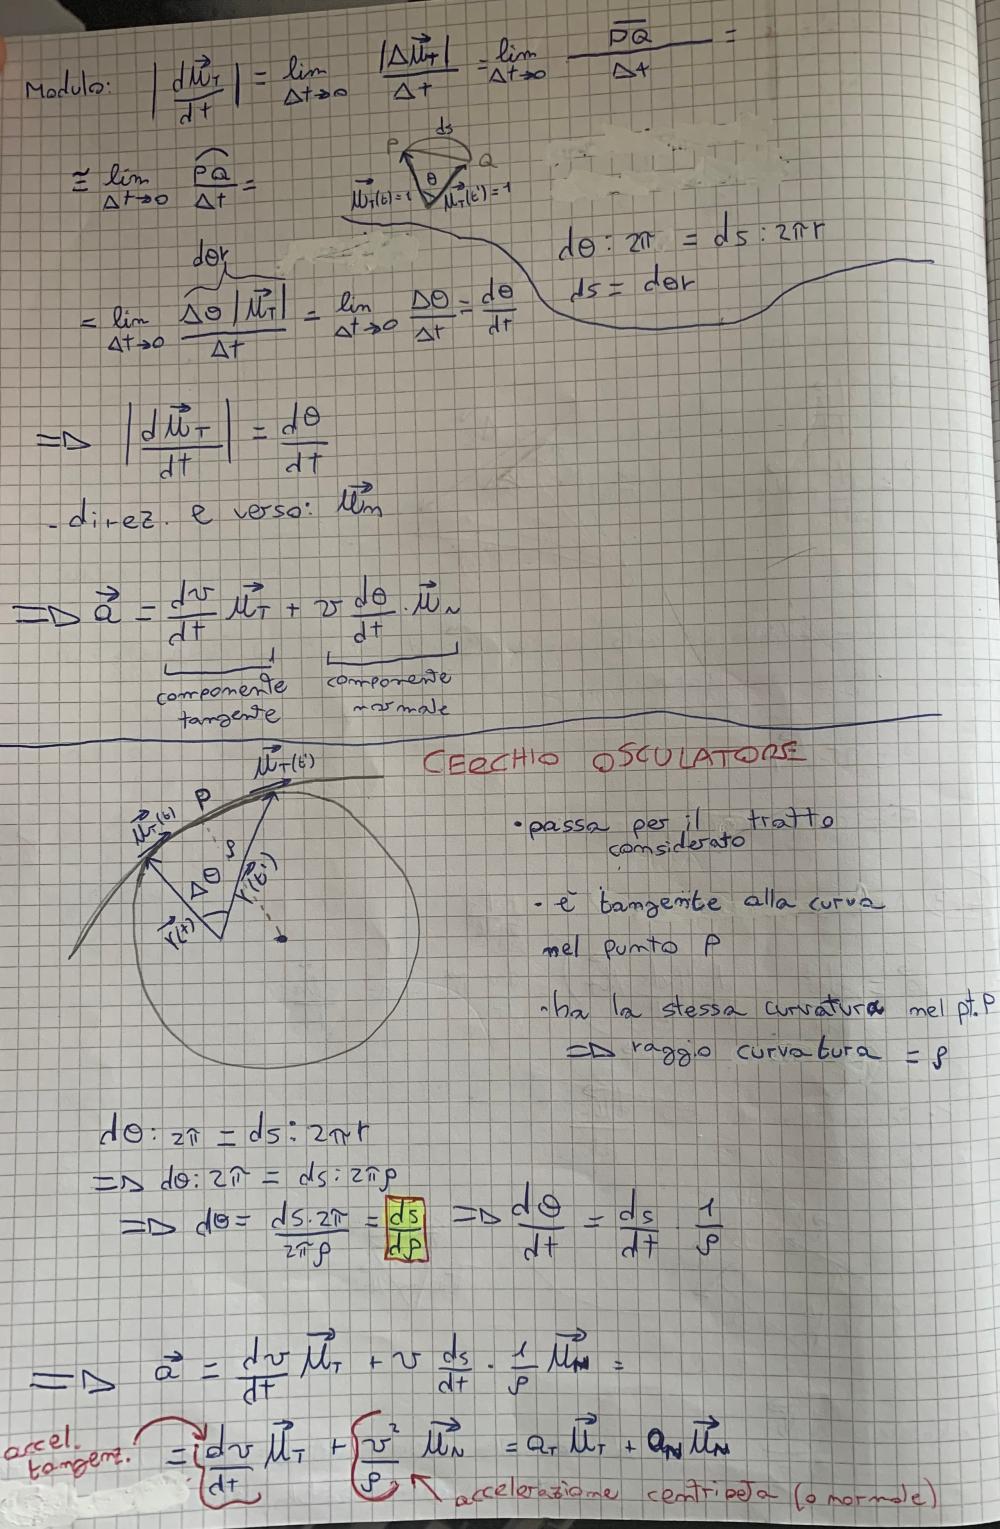 Modulo: |d𝜇⃗_T/dt| = lim_{Δt→0} |Δ𝜇⃗_T|/Δt = lim_{Δt→0} P̅Q̅/Δt =
ds
P Q
θ
𝜇⃗_T(t)=1 𝜇⃗_T(t')=1
≅ lim_{Δt→0} P͡Q/Δt =
dθ : 2π = ds : 2πr
ds = dθr
dθr
= lim_{Δt→0} Δθ |𝜇⃗_T|/Δt = lim_{Δt→0} Δθ/Δt = dθ/dt
=> |d𝜇⃗_T/dt| = dθ/dt
- direz. e verso: 𝜇⃗_n
=> a⃗ = dv/dt 𝜇⃗_T + v dθ/dt · 𝜇⃗_N
componente tangente
componente normale
CERCHIO OSCULATORE
𝜇⃗_T(t')
𝜇⃗_T(t)
P
ρ
Δθ
r⃗(t)
r⃗(t')
• passa per il tratto
considerato
• è tangente alla curva
nel punto P
• ha la stessa curvatura nel pt. P
=> raggio curvatura = ρ
dθ : 2π = ds : 2πr
=> dθ : 2π = ds : 2πρ
=> dθ = ds·2π/2πρ = ds/dρ => dθ/dt = ds/dt 1/ρ
=> a⃗ = dv/dt 𝜇⃗_T + v ds/dt · 1/ρ 𝜇⃗_N =
accel.
tangenz.
= dv/dt 𝜇⃗_T + v²/ρ 𝜇⃗_N = a_T 𝜇⃗_T + a_N 𝜇⃗_N
accelerazione centripeta (o normale)